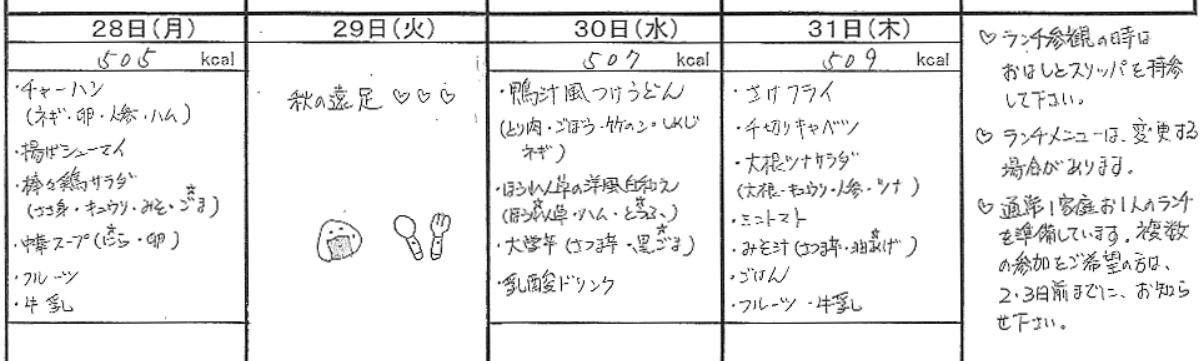 28日(月)
505 kcal
・チャーハン
(ネギ・卵・人参・ハム)
・揚げシューマイ
・棒々鶏サラダ
(ささ身・キュウリ・みそ・ごま)
・中華スープ(にら・卵)
・フルーツ
・牛乳
29日(火)
秋の遠足♡♡♡
30日(水)
507 kcal
・鴨汁風つけうどん
(とり肉・ごぼう・竹のこ・しめじ
ネギ)
・ほうれん草の洋風白和え
(ほうれん草・ハム・とうふ)
・大学芋(さつま芋・黒ごま)
・乳酸ドリンク
31日(木)
509 kcal
・さけフライ
・千切りキャベツ
・大根ツナサラダ
(大根・キュウリ・人参・ツナ)
・ミニトマト
・みそ汁(さつま芋・油あげ)
・ごはん
・フルーツ・牛乳
♡ランチ参観の時は
おはしとスリッパを持参
して下さい。
♡ランチメニューは、変更する
場合があります。
♡通常1家庭お1人のランチ
を準備しています。複数
の参加をご希望の方は、
2・3日前までに、お知ら
せ下さい。